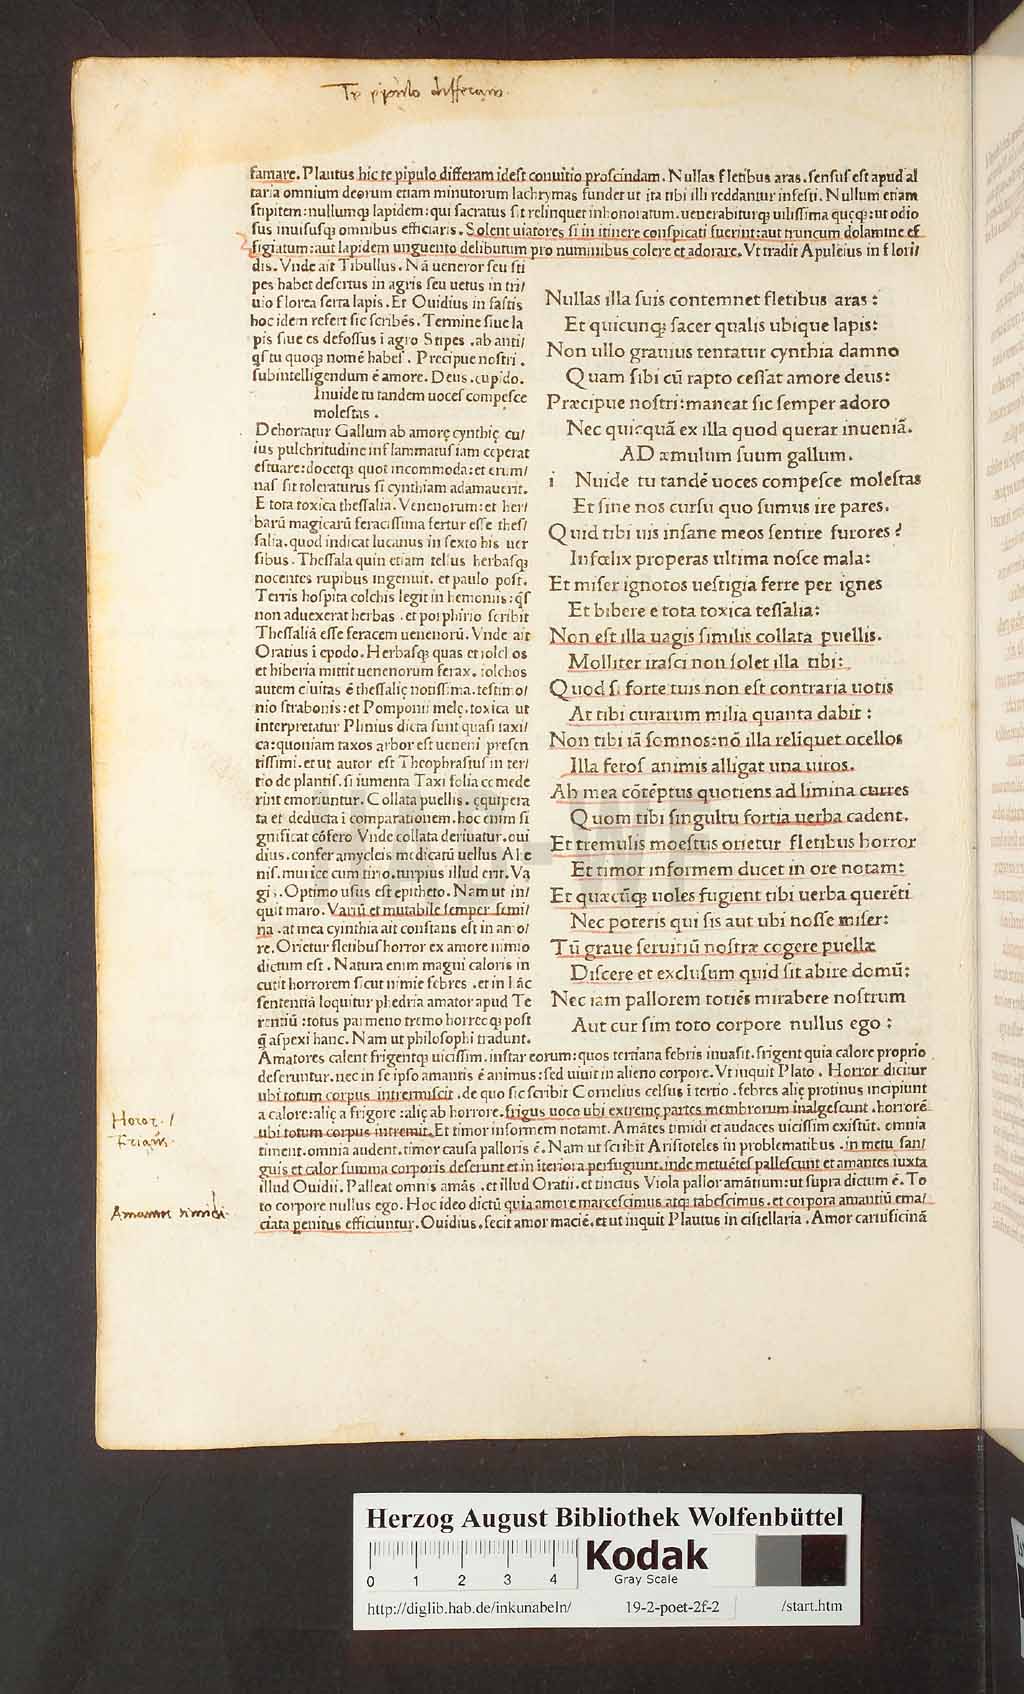 Te pipulo differam.
famare. Plautus hic te pipulo differam idest conuitio proscindam. Nullas fletibus aras. sensus est apud al
taria omnium deorum etiam minutorum lachrymas fundet ut ita tibi illi reddantur infesti. Nullum etiam
stipitem: nullumqꝫ lapidem: qui sacratus sit relinquet inhonoratum. uenerabiturqꝫ uilissima quęqꝫ: ut odio
sus inuisusqꝫ omnibus efficiaris. Solent uiatores si in itinere conspicati fuerint: aut truncum dolamine ef
figiatum: aut lapidem unguento delibutum pro numinibus colere et adorare. Vt tradit Apuleius in flori/
dis. Vnde ait Tibullus. Nã ueneror seu sti
pes habet desertus in agris seu uetus in tri/
uio florea serta lapis. Et Ouidius in fastis
hoc idem refert sic scribẽs. Termine siue la
pis siue es defossus ĩ agro Stipes. ab anti/
qs tu quoqꝫ nomẽ habes. Precipue nostri.
subintelligendum ẽ amore. Deus. cupido.
Inuide tu tandem uoces compesce
molestas.
Dehortatur Gallum ab amorę cynthię cu/
ius pulchritudine inflammatus iam cęperat
estuare: docetqꝫ quot incommoda: et erum/
nas sit toleraturus si cynthiam adamauerit.
E tota toxica thessalia. Venenorum: et her/
barũ magicarũ feracissima fertur esse thes/
salia. quod indicat lucanus in sexto his uer
sibus. Thessala quin etiam tellus herbasqꝫ
nocentes rupibus ingenuit. et paulo post.
Terris hospita colchis legit in hemoniis: qs
non aduexerat herbas. et porphirio scribit
Thessaliã esse feracem uenenorũ. Vnde ait
Oratius ĩ epodo. Herbasqꝫ quas et iolcl os
et hiberia mittit uenenorum ferax. iolchos
autem ciuitas ẽ thessalię notissima. testimo/
nio strabonis: et Pomponii melę. toxica ut
interpretatur Plinius dicta sunt quasi taxi/
ca: quoniam taxos arbor est ueneni presen
tissimi. et ut autor est Theophrastus in ter/
tio de plantis. si iumenta Taxi folia comede
rint emoriuntur. Collata puellis. ęquipera
ta et deducta ĩ comparationem. hoc enim si
gnificat cõfero Vnde collata deriuatur. oui
dius. confer amycleis medicatũ uellus Ahe
nis. murice cum tirio. turpius illud erit. Va
gis. Optimo usus est epitheto. Nam ut in/
quit maro. Variũ et mutabile semper femi/
na. at mea cyinthia ait constans est in amo/
re. Orietur fletibus horror ex amore nimio
dictum est. Natura enim magni caloris in
cutit horrorem sicut nimie febres. et in hãc
sententiã loquitur phedria amator apud Te
rentiũ: totus parmeno tremo horreoqꝫ post
q̃ aspexi hanc. Nam ut philosophi tradunt.
Nullas illa suis contemnet fletibus aras:
Et quicunqꝫ sacer qualis ubique lapis:
Non ullo grauius tentatur cynthia damno
Quam sibi cũ rapto cessat amore deus:
Præcipue nostri: maneat sic semper adoro
Nec quicquã ex illa quod querar inueniã.
AD æmulum suum gallum.
i Nuide tu tandẽ uoces compesce molestas
Et sine nos cursu quo sumus ire pares.
Quid tibi uis insane meos sentire furores?
Infœlix properas ultima nosce mala:
Et miser ignotos uestigia ferre per ignes
Et bibere e tota toxica tessalia:
Non est illa uagis similis collata puellis.
Molliter irasci non solet illa tibi:
Quod si forte tuis non est contraria uotis
At tibi curarum milia quanta dabit:
Non tibi iã somnos: nõ illa reliquet ocellos
Illa feros animis alligat una uiros.
Ah mea cõtẽptus quotiens ad limina curres
Quom tibi singultu fortia uerba cadent.
Et tremulis moestus orietur fletibus horror
Et timor informem ducet in ore notam:
Et quæcũqꝫ uoles fugient tibi uerba querẽti
Nec poteris qui sis aut ubi nosse miser:
Tũ graue seruitiũ nostræ cogere puellæ
Discere et exclusum quid sit abire domũ:
Nec iam pallorem totiẽs mirabere nostrum
Aut cur sim toto corpore nullus ego:
Amatores calent frigentqꝫ uicissim. instar eorum: quos tertiana febris inuasit. frigent quia calore proprio
deseruntur. nec in se ipso amantis ẽ animus: sed uiuit in alieno corpore. Vt inquit Plato. Horror dicitur
ubi totum corpus intremiscit. de quo sic scribit Cornelius celsus ĩ tertio. febres alię protinus incipiunt
a calore: alię a frigore: alię ab horrore. frigus uoco ubi extremę partes membrorum inalgescunt. horrorẽ
ubi totum corpus intremit. Et timor informem notamt. Amãtes timidi et audaces uicissim existũt. omnia
timent. omnia audent. timor causa palloris ẽ. Nam ut scribit Aristoteles in problematibus. in metu san/
guis et calor summa corporis deserunt et in ĩteriora perfugiunt. inde metuẽtes pallescunt et amantes iuxta
illud Ouidii. Palleat omnis amãs. et illud Oratii. et tinctus Viola pallor amãtium: ut supra dictum ẽ. To
to corpore nullus ego. Hoc ideo dictũ quia amore marcescimus atqꝫ tabescimus. et corpora amantiũ ema/
ciata penitus efficiuntur. Ouidius. fecit amor maciẽ. et ut inquit Plautus in cistellaria. Amor carnificinã
Horor. /
Frigus.
Amantes timidi.
HAB-WF
Herzog August Bibliothek Wolfenbüttel
0 1 2 3 4
Kodak
Gray Scale
http://diglib.hab.de/inkunabeln/ 19-2-poet-2f-2 /start.htm